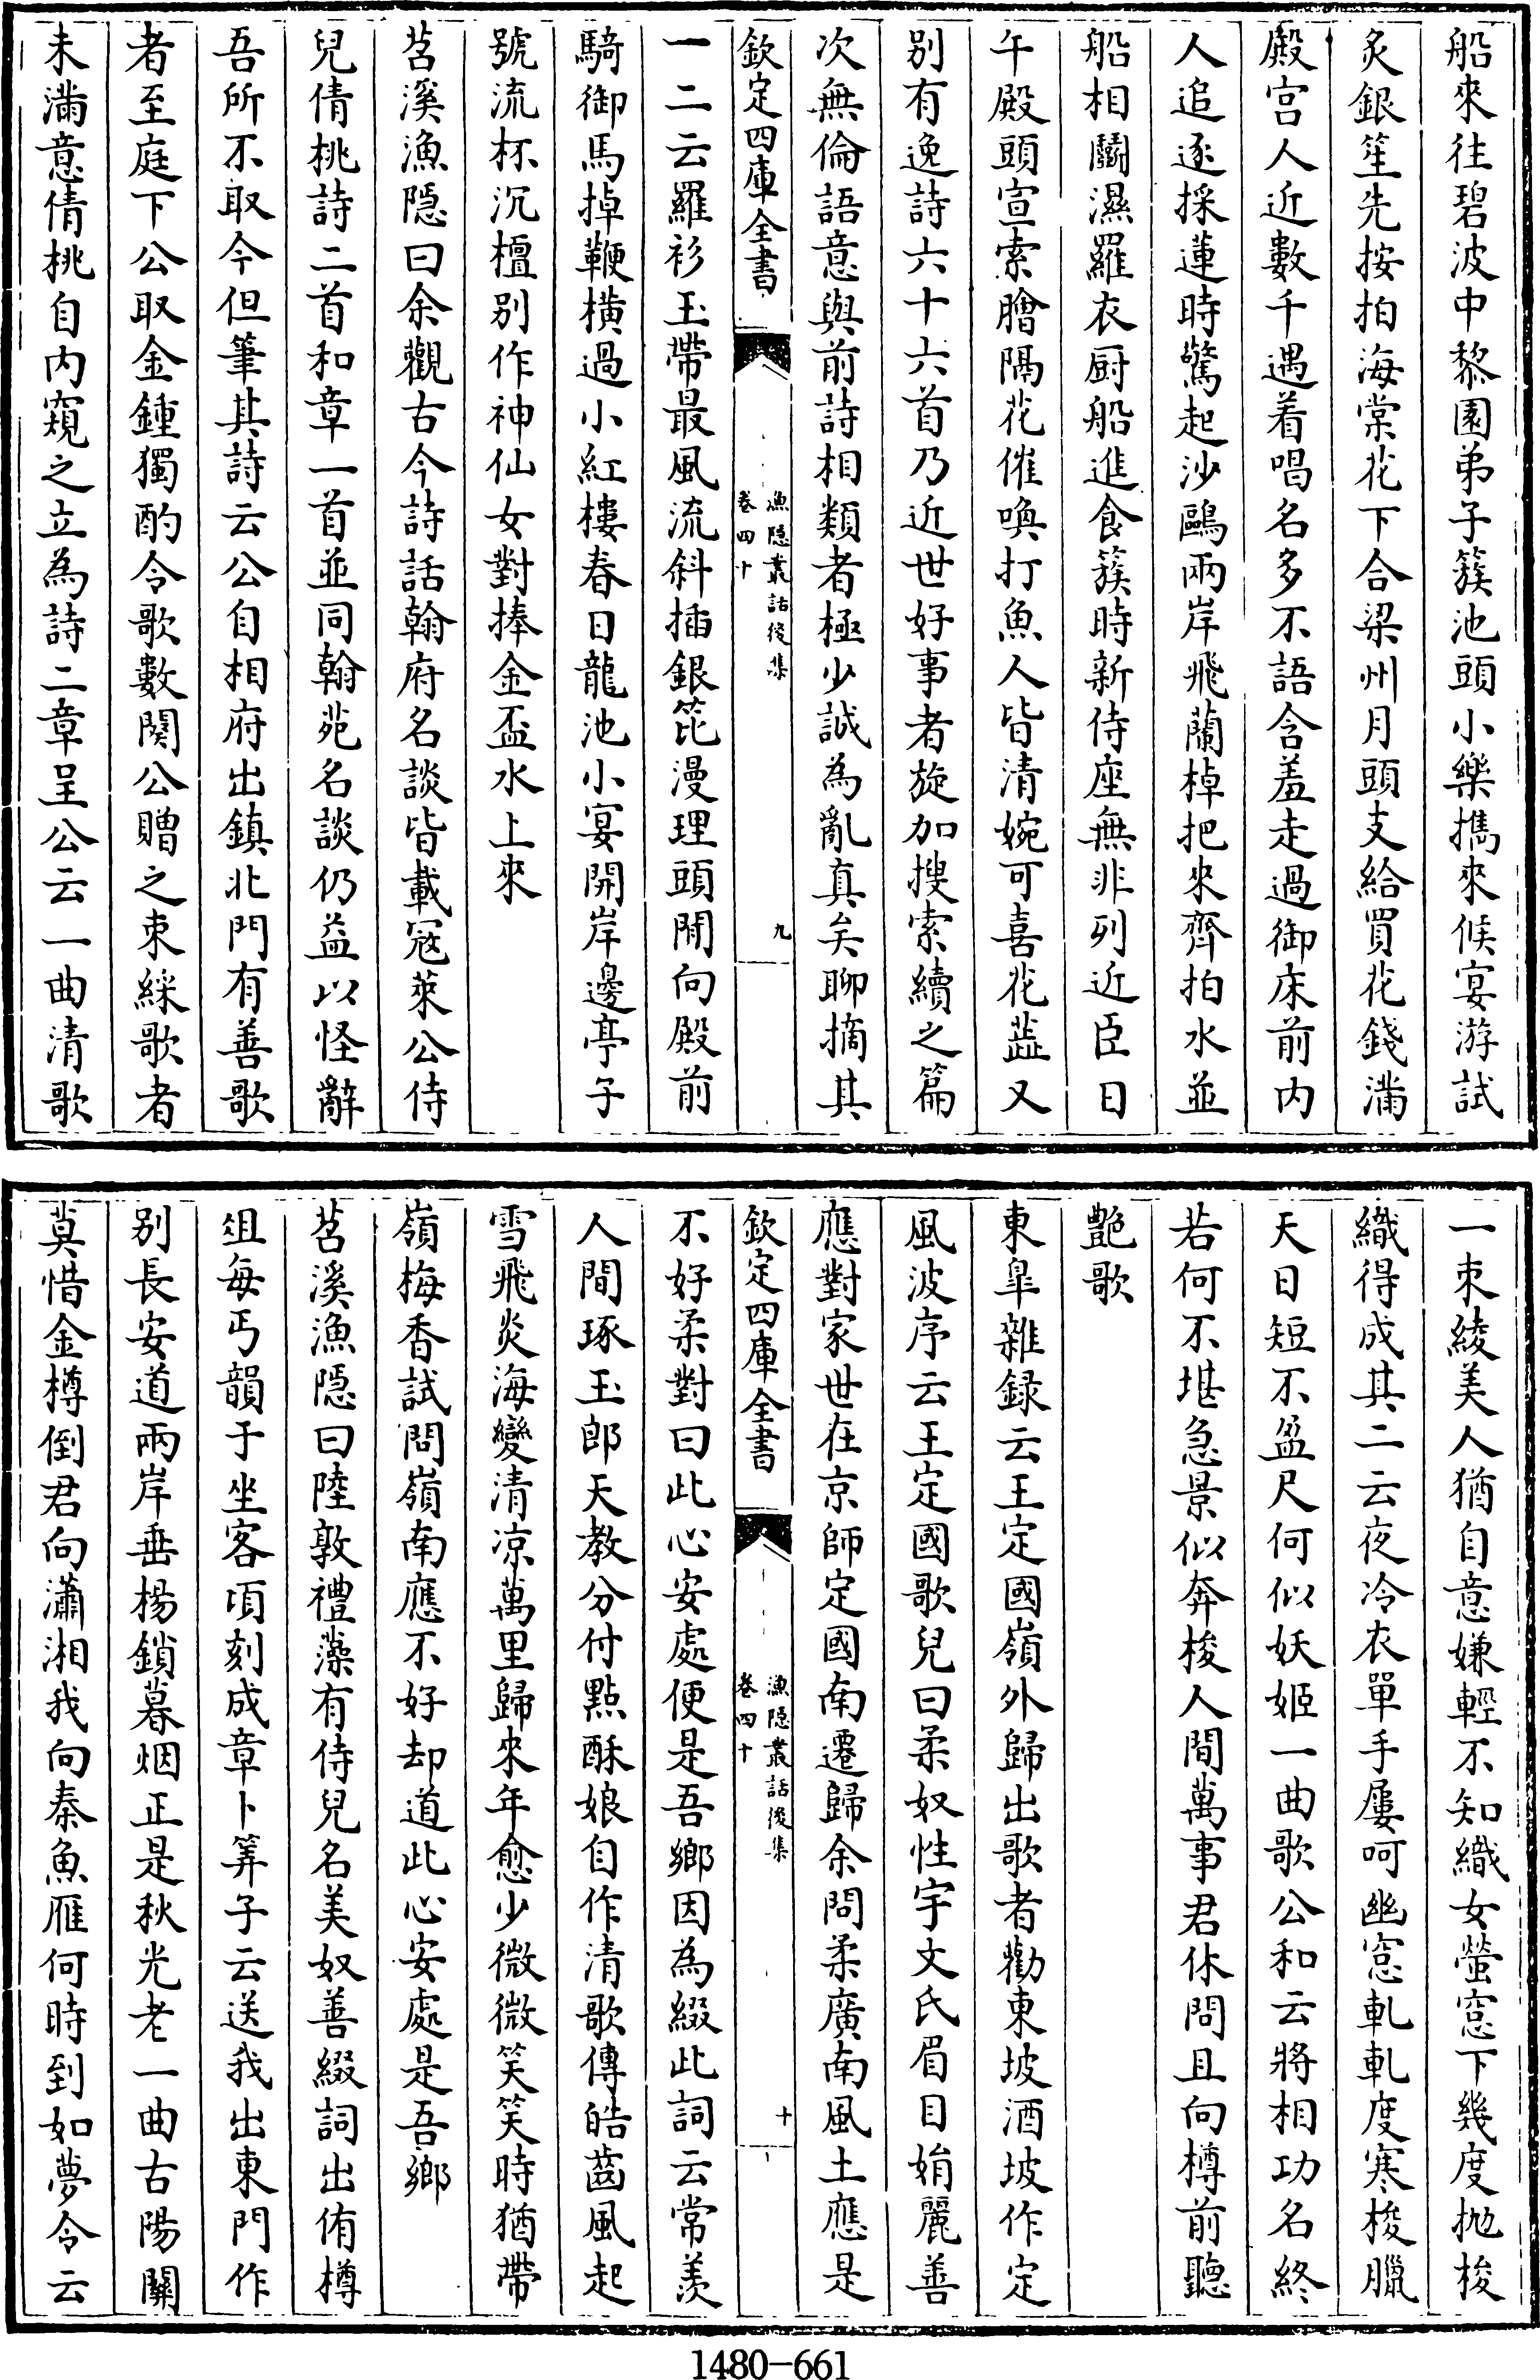 船來往碧波中黎園弟子簇池頭小樂攜來候宴游試
炙銀笙先按拍海棠花下合梁州月頭支給買花錢滿
殿宫人近數千遇着唱名多不語含羞走過御床前内
人追逐採蓮時驚起沙鷗兩岸飛蘭棹把來齊拍水並
船相鬭濕羅衣厨船進食簇時新侍座無非列近臣日
午殿頭宣索膾隔花催喚打魚人皆清婉可喜花蕋又
别有逸詩六十六首乃近世好事者旋加搜索續之篇
次無倫語意與前詩相類者極少誠為亂真矣聊摘其
欽定四庫全書
漁隱叢話後集
卷四十
九
一二云羅衫玉帶最風流斜插銀篦漫理頭閒向殿前
騎御馬掉鞭横過小紅樓春日龍池小宴開岸邊亭子
號流杯沉檀别作神仙女對捧金盃水上來
苕溪漁隱曰余觀古今詩話翰府名談皆載冦萊公侍
兒倩桃詩二首和章一首並同翰苑名談仍益以怪辭
吾所不取今但筆其詩云公自相府出鎮北門有善歌
者至庭下公取金鍾獨酌令歌數闋公贈之束綵歌者
未滿意倩桃自内窺之立為詩二章呈公云一曲清歌
一束綾美人猶自意嫌輕不知織女螢窓下幾度抛梭
織得成其二云夜冷衣單手屢呵幽窓軋軋度寒梭臘
天日短不盈尺何似妖姬一曲歌公和云將相功名終
若何不堪急景似奔梭人間萬事君休問且向樽前聽
艷歌
東臯雜録云王定國嶺外歸出歌者勸東坡酒坡作定
風波序云王定國歌兒曰柔奴性宇文氏眉目娟麗善
應對家世在京師定國南遷歸余問柔廣南風土應是
欽定四庫全書
漁隱叢話後集
卷四十
十
不好柔對曰此心安處便是吾鄉因為綴此詞云常羨
人間琢玉郎天教分付點酥娘自作清歌傳皓齒風起
雪飛炎海變清凉萬里歸來年愈少微微笑笑時猶帶
嶺梅香試問嶺南應不好却道此心安處是吾鄉
苕溪漁隱曰陸敦禮藻有侍兒名美奴善綴詞出侑樽
俎每丐韻于坐客頃刻成章卜筭子云送我出東門作
别長安道兩岸垂楊鎖暮烟正是秋光老一曲古陽關
莫惜金樽倒君向瀟湘我向秦魚雁何時到如夢令云
1480-661